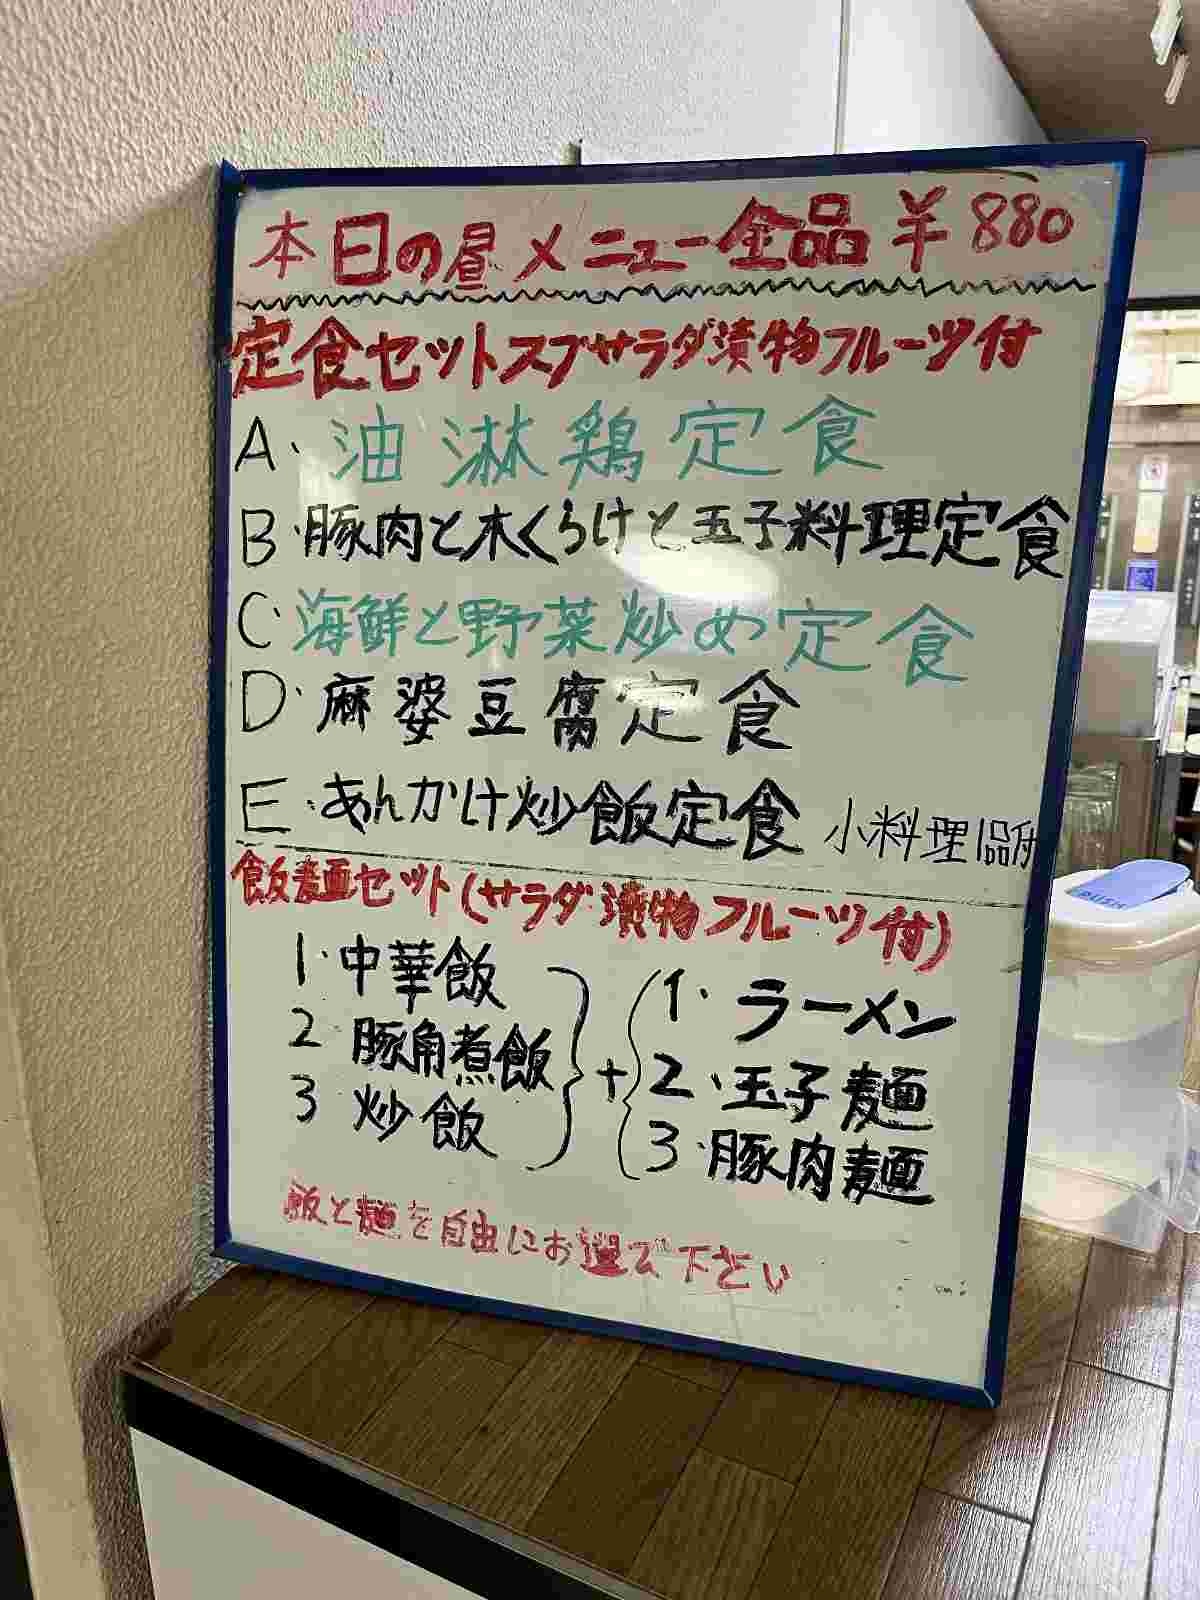 本日の昼メニュー全品￥880
定食セットスブサラダ漬物フルーツ付
A. 油淋鶏定食
B. 豚肉と木くらけと玉子料理定食
C. 海鮮と野菜炒め定食
D. 麻婆豆腐定食
E. あんかけ炒飯定食 小料理1品付
飯麺セット(サラダ漬物フルーツ付)
1. 中華飯
2 豚角煮飯
3 炒飯
+
1. ラーメン
2. 玉子麺
3. 豚肉麺
飯と麺を自由にお選び下さい